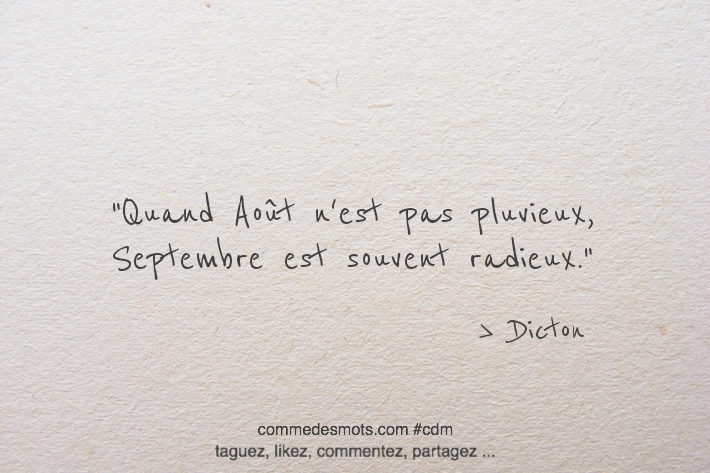 "Quand Août n'est pas pluvieux,
Septembre est souvent radieux."
> Dicton
commedesmots.com #cdm
taguez, likez, commentez, partagez ...